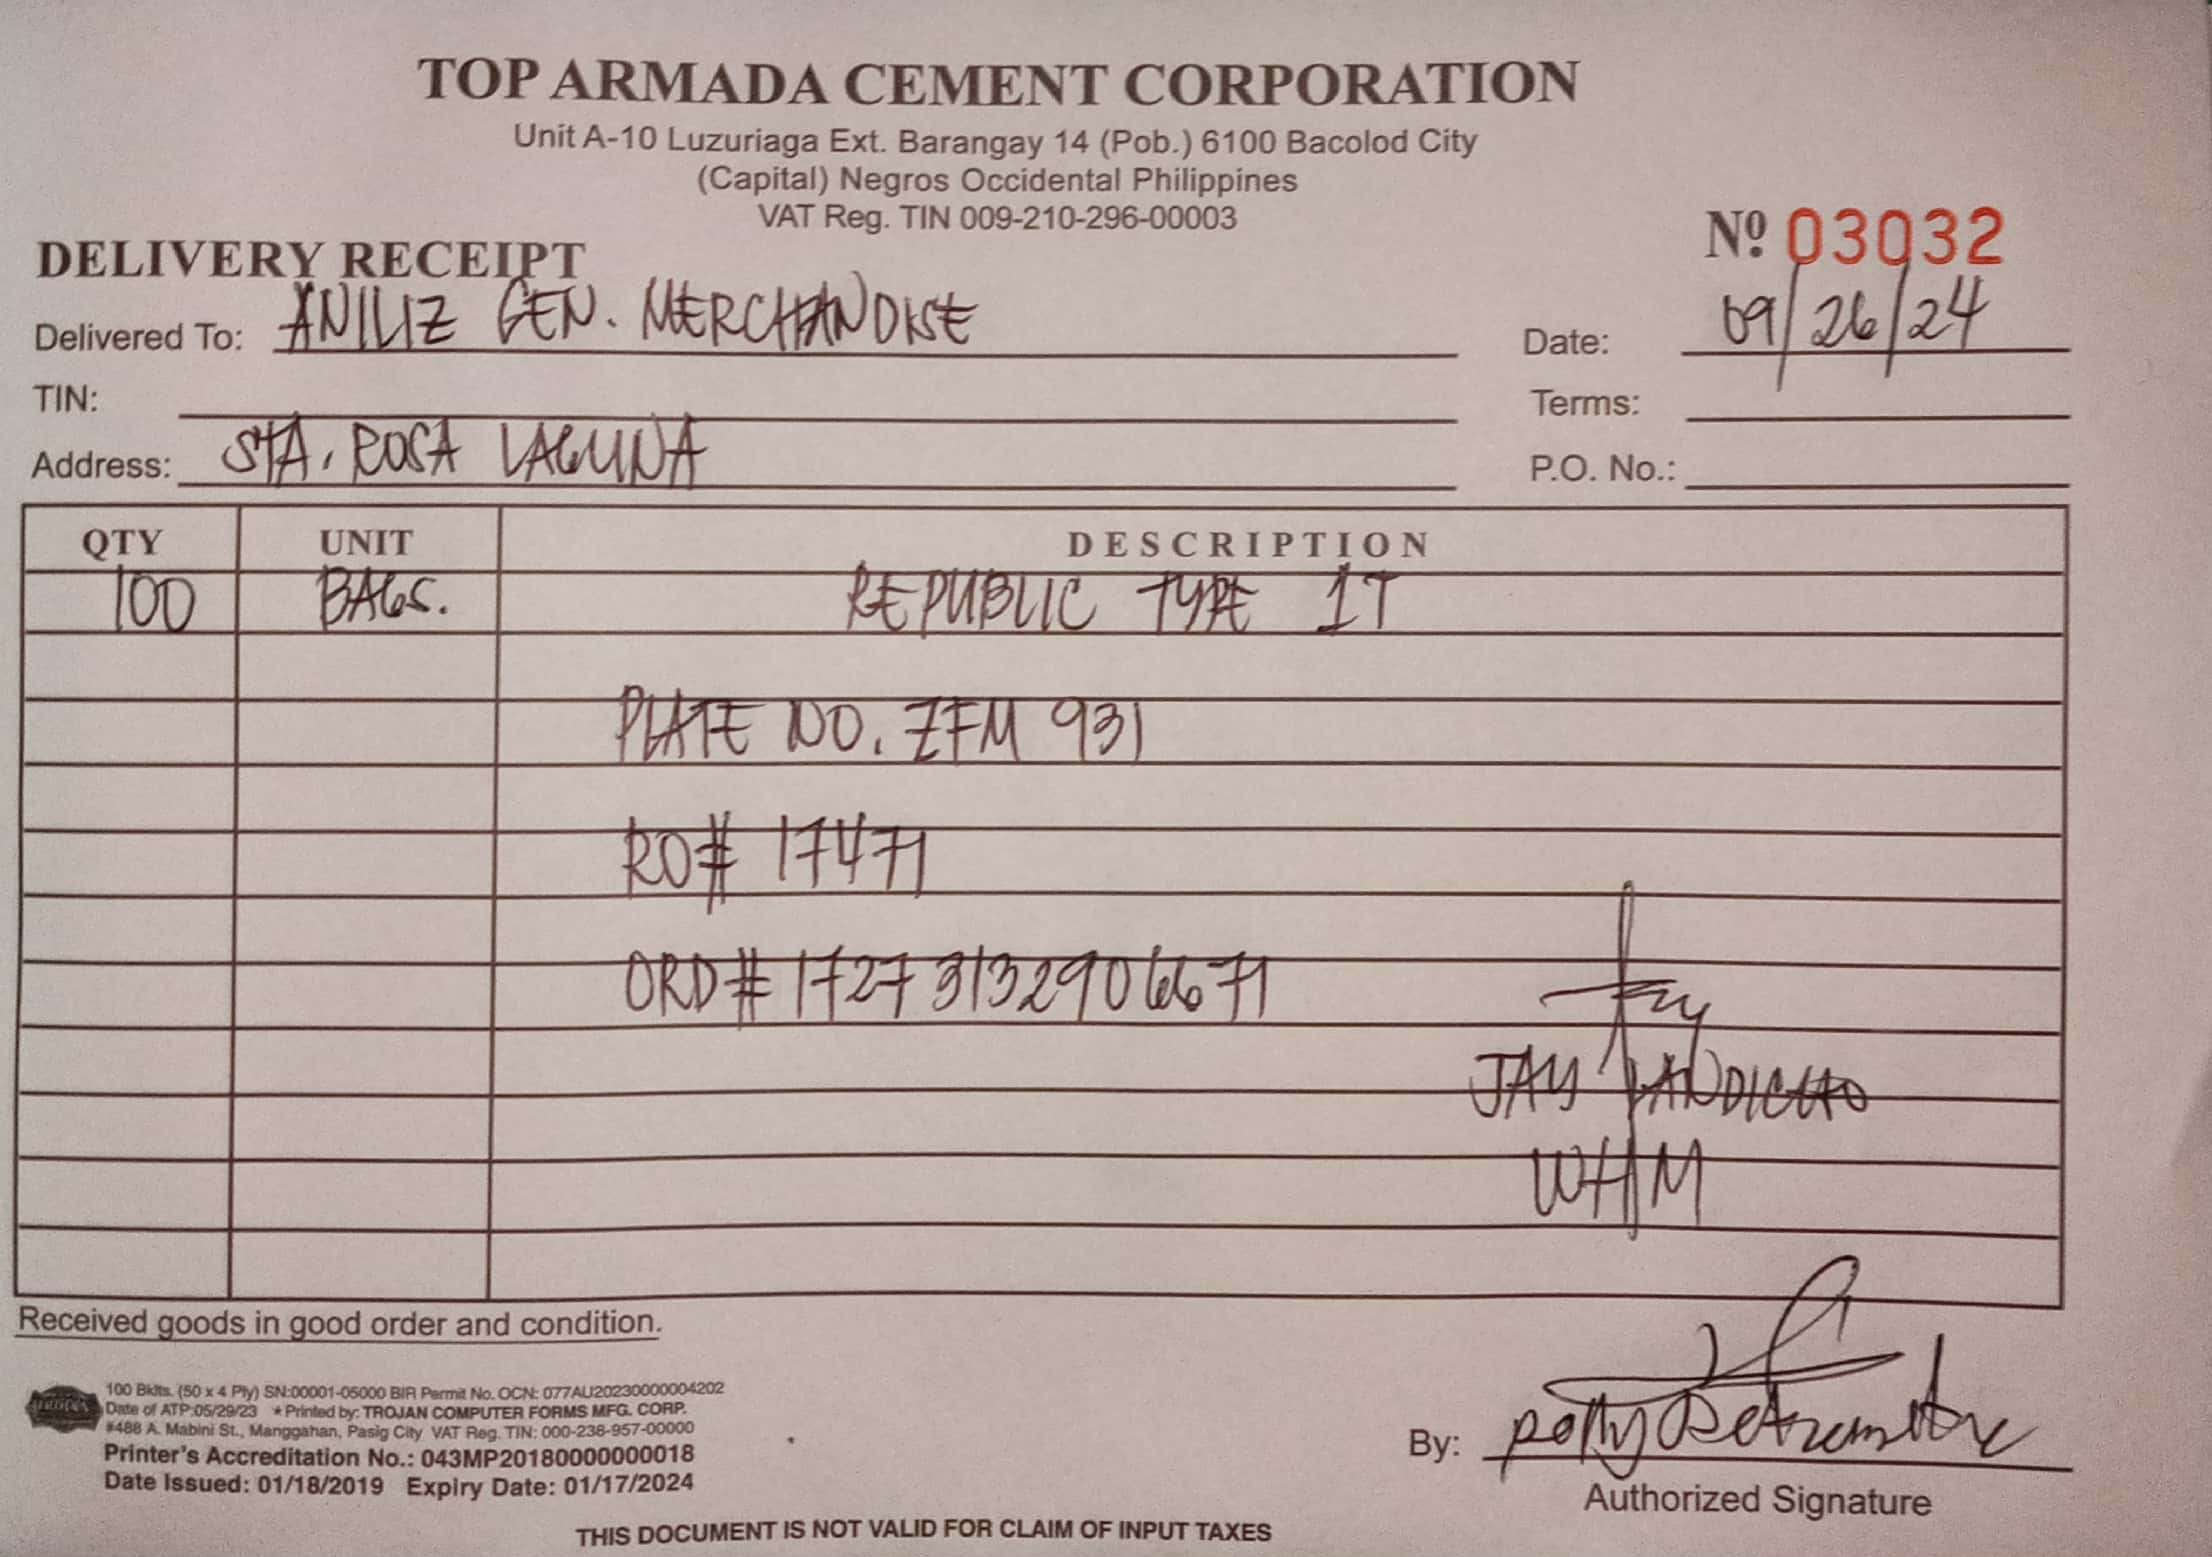 TOP ARMADA CEMENT CORPORATION
Unit A-10 Luzuriaga Ext. Barangay 14 (Pob.) 6100 Bacolod City
(Capital) Negros Occidental Philippines
VAT Reg. TIN 009-210-296-00003
DELIVERY RECEIPT
Nº 03032
Delivered To: ANILIZ GEN. MERCHANDISE
Date: 09/26/24
TIN:
Terms:
Address: STA. ROSA LAGUNA
P.O. No.:
QTY UNIT DESCRIPTION
100 BAGS. REPUBLIC TYPE 1T
PLATE NO. ZFM 931
RO# 17471
ORD# 17273132906671
JAY
WHM
Received goods in good order and condition.
100 Bklts. (50 x 4 Ply) SN:00001-05000 BIR Permit No. OCN: 077AU20230000004202
Date of ATP:05/29/23 ★Printed by: TROJAN COMPUTER FORMS MFG. CORP.
#488 A. Mabini St., Manggahan, Pasig City VAT Reg. TIN: 000-238-957-00000
Printer's Accreditation No.: 043MP20180000000018
Date Issued: 01/18/2019 Expiry Date: 01/17/2024
By:
Authorized Signature
THIS DOCUMENT IS NOT VALID FOR CLAIM OF INPUT TAXES